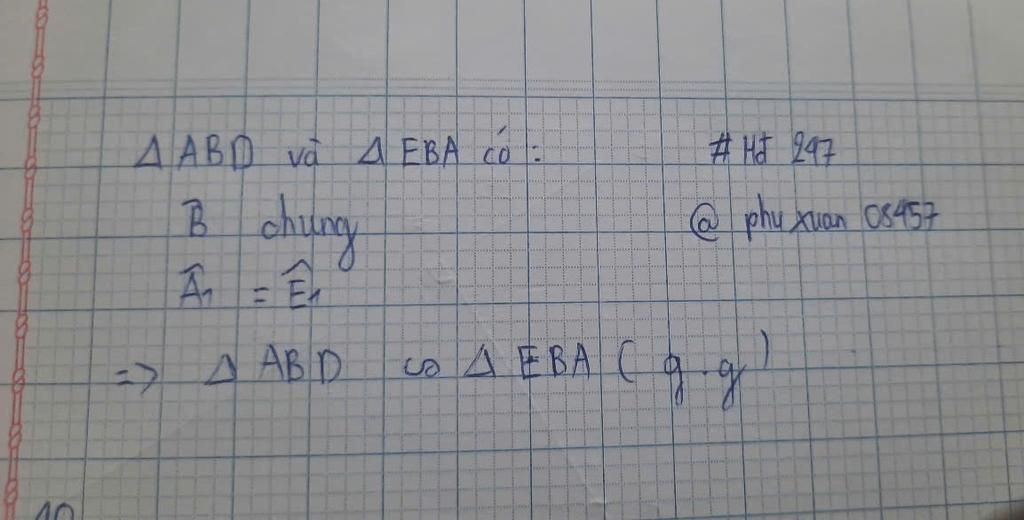 Δ ABD và Δ EBA có : # Hđ 247
B̂ chung @ phuxuan 08457
Â₁ = Ê₁
=> Δ ABD ∽ Δ EBA ( g . g )
10